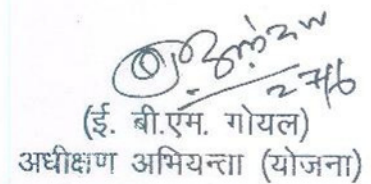 27/6
(ई. बी.एम. गोयल)
अधीक्षण अभियन्ता (योजना)